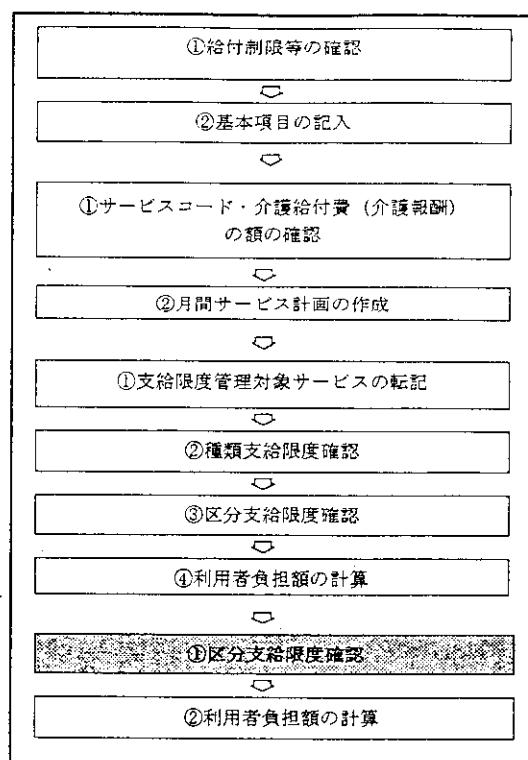 ①給付制限等の確認
②基本項目の記入
①サービスコード・介護給付費（介護報酬）
の額の確認
②月間サービス計画の作成
①支給限度管理対象サービスの転記
②種類支給限度確認
③区分支給限度確認
④利用者負担額の計算
①区分支給限度確認
②利用者負担額の計算